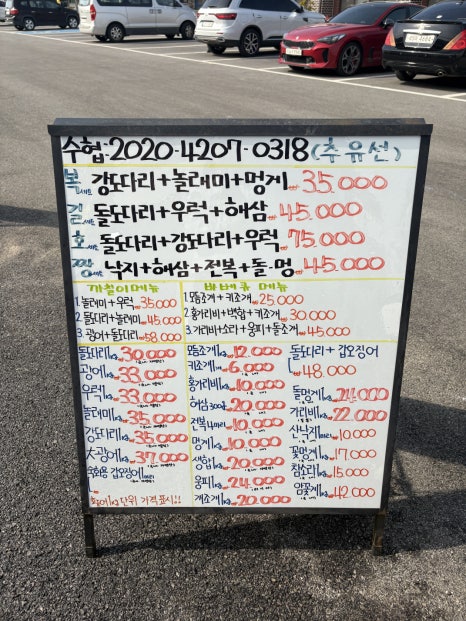 수협:2020-4207-0318 (추유선)
복세트 강도다리+놀래미+멍게 35.000
길세트 돌도다리+우럭+해삼 45.000
호세트 돌도다리+강도다리+우럭 75.000
짱세트 낙지+해삼+전복+돌·멍 45.000
까칠이메뉴
1.놀래미+우럭 35.000
2.돌도다리+놀래미 45.000
3.광어+돌도다리 58.000
바베큐 메뉴
1.모듬조개+키조개 25.000
2.홍가리비+백합+키조개 30.000
3.가리비+소라+웅피+돌조개 45.000
돌도다리 1kg 30.000
광어 1kg 33.000
우럭 1kg 33.000
놀래미 1kg 35.000
강도다리 1kg 35.000
대광어 1kg 37.000
갑오징어
횟감 1kg 단위 가격표시!!
모듬조개 1kg 12.000
키조개 6.000
홍가리비 1kg 10.000
해삼 300g 20.000
전복 4마리 10.000
멍게 1kg 10.000
생합 1kg 20.000
웅피 1kg 24.000
개조개 1kg 20.000
돌도다리 + 갑오징어
48.000
돌멍게 1kg 24.000
가리비 1kg 22.000
산낙지 10.000
꽃멍게 1kg 17.000
참소라 1kg 15.000
암꽃게 1kg 42.000